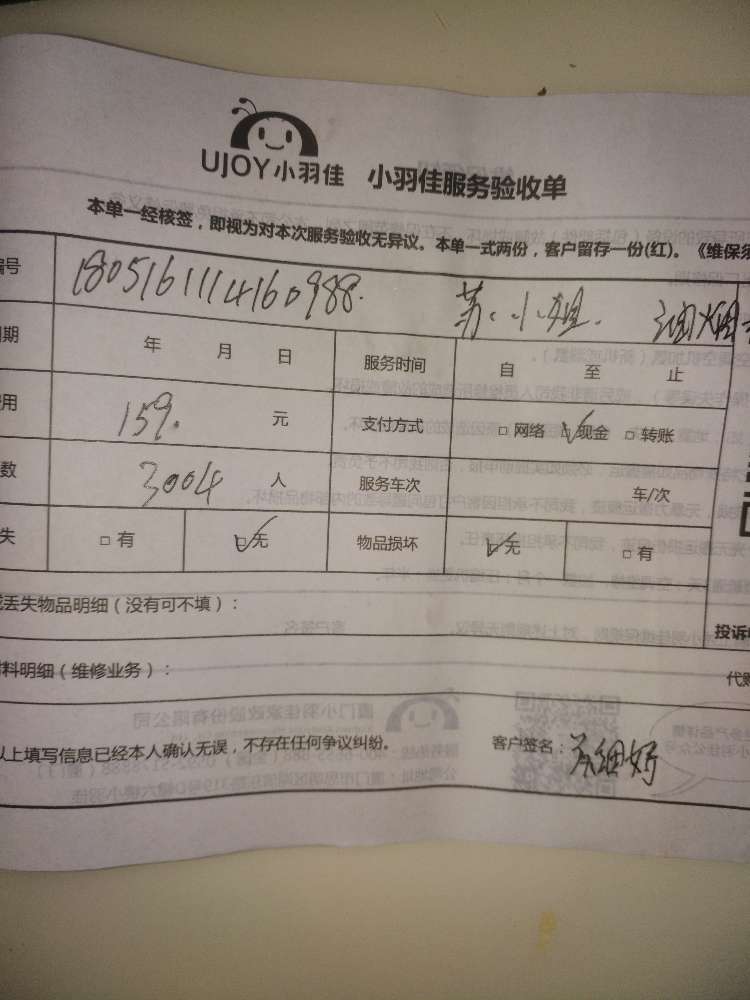 UJOY小羽佳 小羽佳服务验收单
本单一经核签，即视为对本次服务验收无异议。本单一式两份，客户留存一份(红)。《维保条
编号 1805161114160988. 苏小姐. 油烟
期 年 月 日 服务时间 自 至 止
用 159. 元 支付方式 □ 网络 □ 现金 □ 转账
数 3004 人 服务车次 车/次
失 □ 有 □ 无 物品损坏 □ 无 □ 有
或丢失物品明细（没有可不填）：
投诉
材料明细（维修业务）：
代购
以上填写信息已经本人确认无误，不存在任何争议纠纷。 客户签名：苏细好